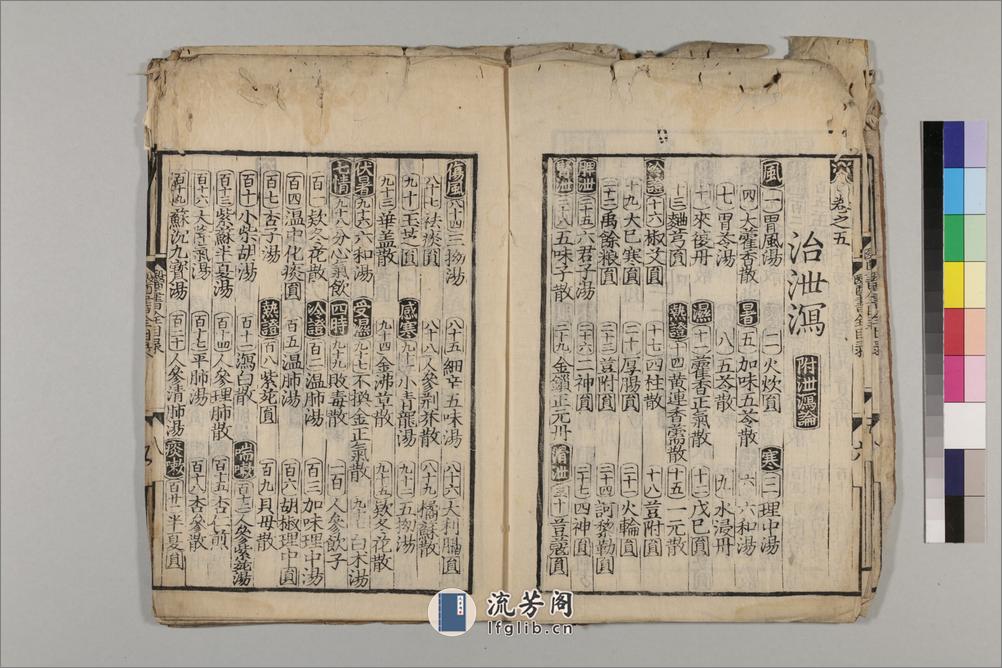 卷之五
治泄瀉 附泄瀉論
風 一 胃風湯 二 火炊圓 寒 三 理中湯
四 大藿香散 暑 五 加味五苓散 六 六和湯
七 胃苓湯 八 五苓散 九 水浸丹
十 來復丹 濕 十一 藿香正氣散 十二 戊巳圓
十三 麯芎圓 熱證 十四 黃連香薷散 十五 一元散
冷證 十六 椒艾圓 十七 四柱散 十八 荳附圓
十九 大巳寒圓 二十 厚腸圓 二十一 火輪圓
二十二 禹餘粮圓 二十三 荳附圓 二十四 訶黎勒圓
二十五 六君子湯 二十六 二神圓 二十七 四神圓
二十八 五味子散 二十九 金鎖正元丹 滑泄 三十 荳蔻圓
傷風 八十四 三拗湯 八十五 細辛五味湯 八十六 大利膈圓
八十七 祛痰圓 八十八 人參荊芥散 八十九 橘蘇散
九十 玉芝圓 感寒 九十一 小青龍湯 九十二 五拗湯
九十三 華蓋散 九十四 金沸草散 九十五 款冬花散
伏暑 九十六 六和湯 受濕 九十七 不換金正氣散 白朮湯
七情 九十八 分心氣飲 四時 九十九 敗毒散 一百 人參飲子
百一 款冬花散 冷證 百二 溫肺湯 百三 加味理中湯
百四 溫中化痰圓 百五 溫肺湯 百六 胡椒理中圓
百七 杏子湯 熱證 百八 紫菀圓 百九 貝母散
百十 小柴胡湯 百十一 瀉白散 喘嗽 百十二 人參紫菀湯
百十三 紫蘇半夏湯 百十四 人參理肺散 百十五 杏仁煎
百十六 大薑氣湯 百十七 平肺湯 百十八 杏參散
百十九 蘇沈九寶湯 百二十 人參清肺湯 痰嗽 百廿一 半夏圓
醫書全目錄
八
流芳阁
lfglib.cn